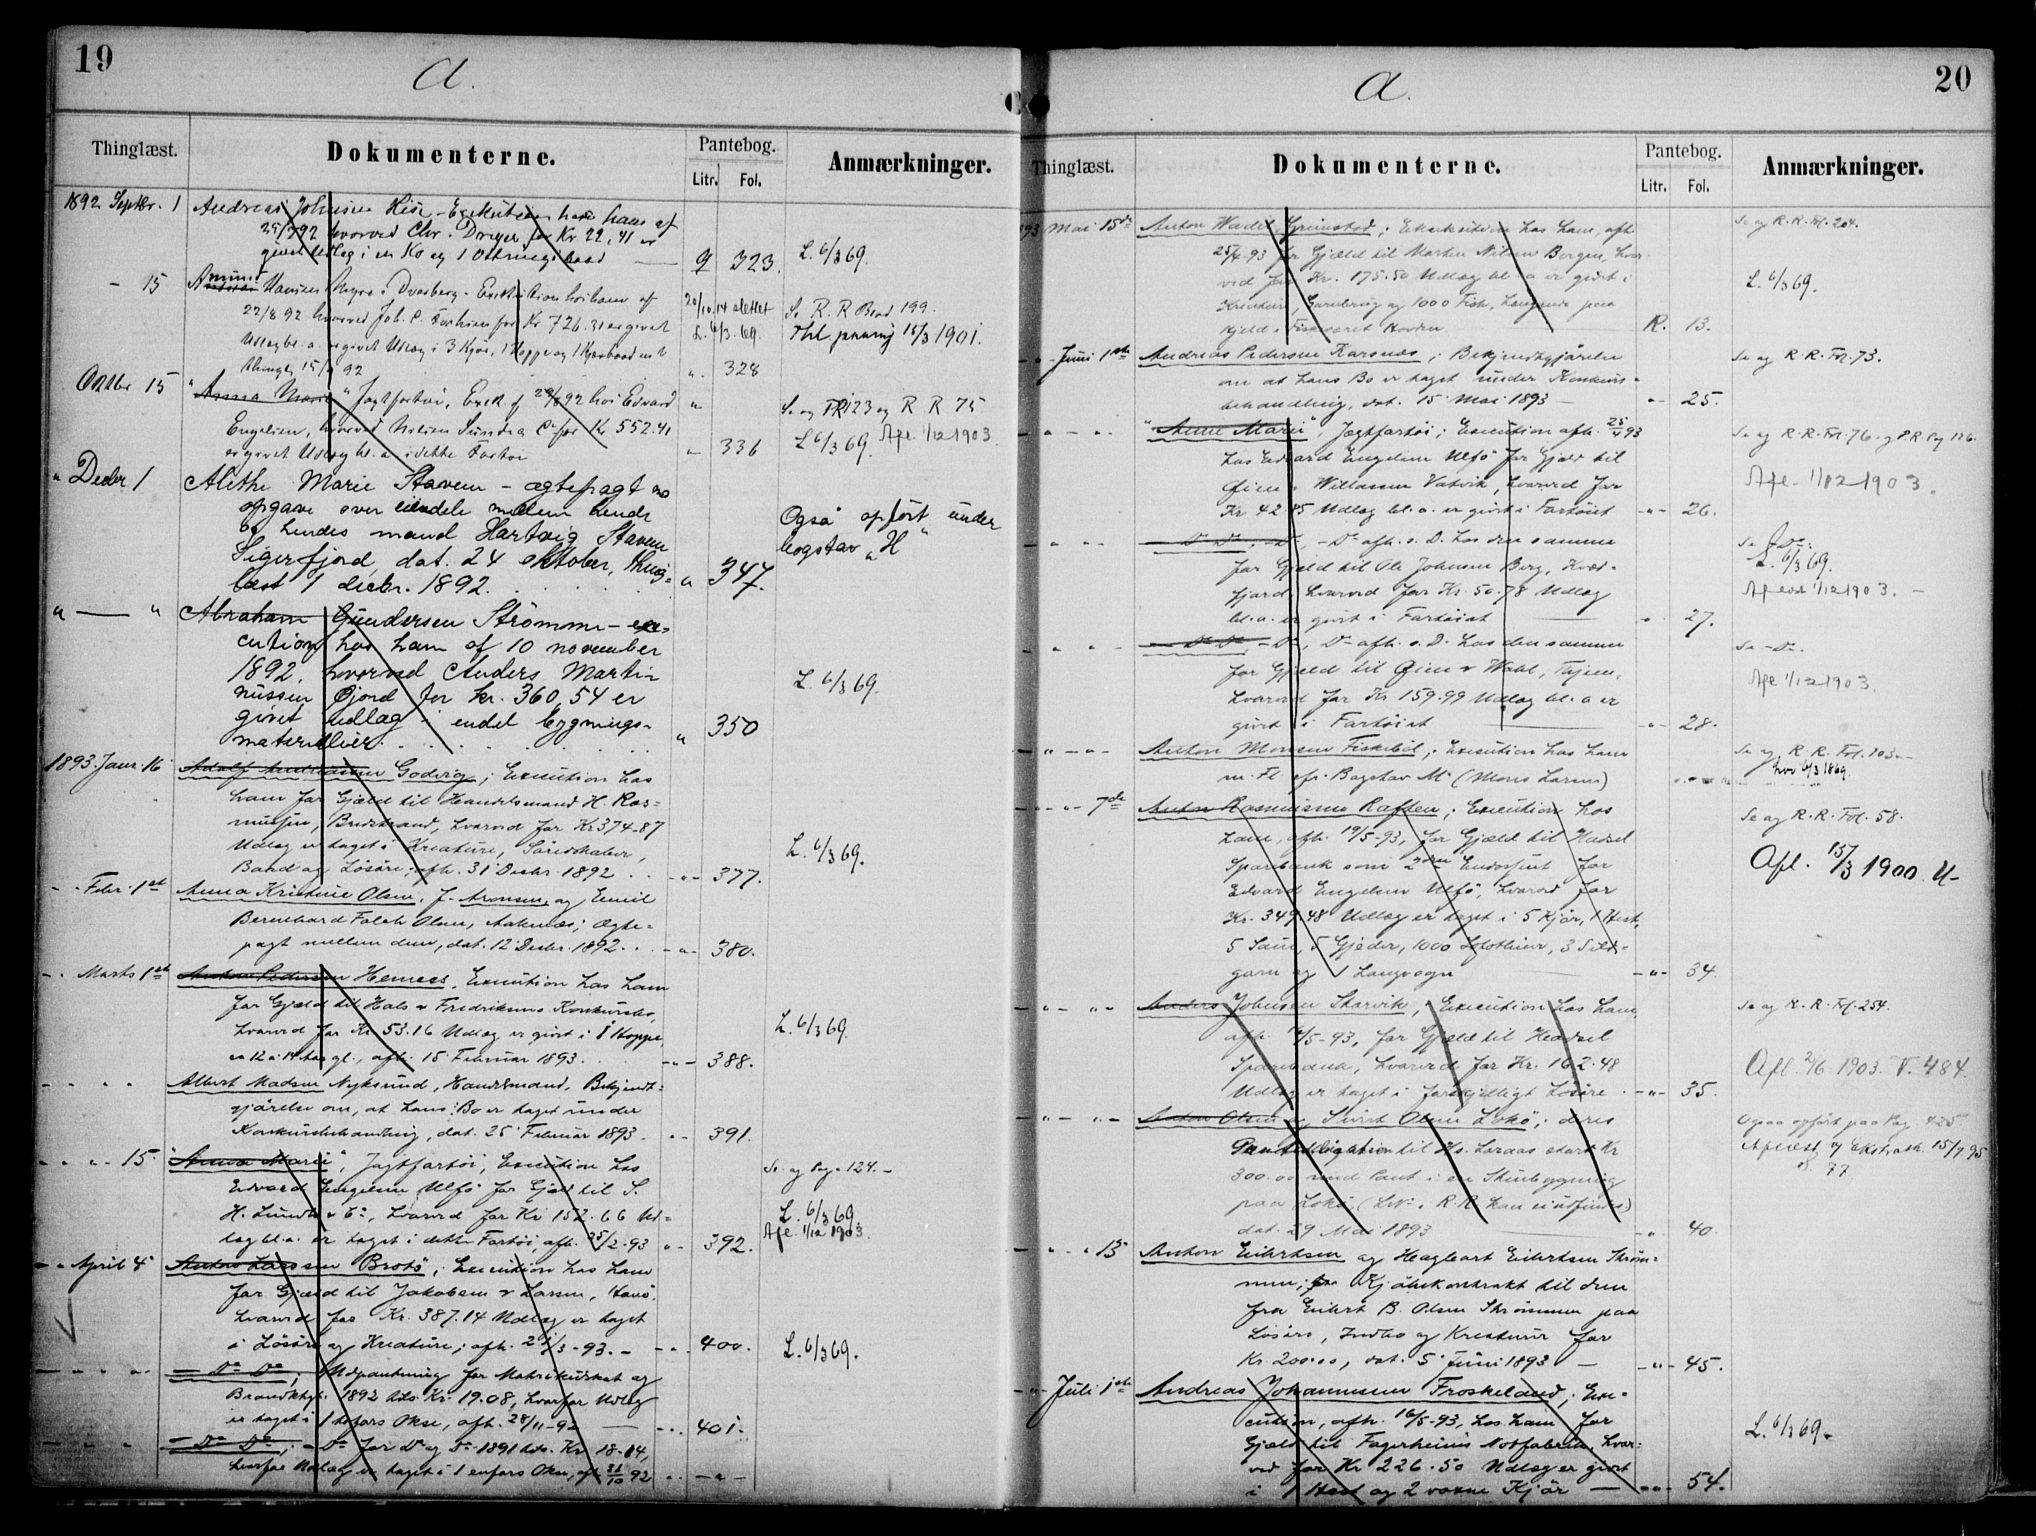 19
A.
Thinglæst.
Dokumenterne.
Pantebog.
Litr. Fol.
Anmærkninger.
1892 Septbr. 1 Andreas Johnsen Execution hos ham af
hvorved Chr. Dreyer for Kr 22,41 er
givet Udlæg i en Ko og 1 Ottringsbaad q 323. L. 6/3 69.
- 15 Hansen Myre i Dverberg - Execution hos ham af 20/10 14 slettet
22/8 92 hvorved Joh. C. for Kr 726.31 er givet L. 6/3 69. Se R. R Blad 199.
Udlæg bl. a. er givet Udlæg i 3 Kjør, 1 Hoppe og 1 15/3 1901.
thingl. 15/9 92 " 328
Oktbr 15 "Anna Marie" Jagtfartøi, Exek. af 29/8 92 hos Edvard " Se og 123 og R R 75
Engelsen, hvorved Nilsen Sund & Co for Kr 552.41 L 6/3 69. Afl. 1/12 1903.
er givet Udlæg bl. a. i dette Fartøi " 336
" Decbr 1 Alethe Marie Stavem - ægtepagt m
opgave over eiendele mellem hende
og hendes mand Hartvig Stavem
Sigerfjord, dat. 24 oktober, thing-
læst 1 decbr. 1892. " 347.
Også opført under
bogstav "H"
" — " Abraham Gundersen Strømme - exe-
cution hos ham af 10 november
1892, hvorved Anders Marti-
nussen Gjord for kr. 360,54 er
givet udlæg i endel bygnings-
materialier. " 350
L. 6/3 69.
1893 Janr. 16 Adolf Andreassen Godvig; Execution hos
ham for Gjæld til Handelsmand H. Ras-
mussen, Budstrand, hvorved for Kr 374-87
Udlæg er taget i Kreature, Søredskaber,
Baad og Løsøre; afh. 31 Decbr. 1892 . . - " - 377.
L. 6/3 69.
- - Febr. 1st Anna Kristine Olsen, f. Aronsen, og Emil
Berenhard Falch Olsen, Aaknæs; Ægte-
pagt mellem dem, dat. 12 Decbr. 1892. . . - " - 380.
- - Marts 1st Anton Pedersen Hemnes, Execution hos ham
for Gjæld til Hals & Fredriksens Konkursbo,
hvorved for Kr 53.16 Udlæg er givet i 1 Hoppe,
ca 12 a 14 Aar gl., afh. 15 Februar 1893. - " - 388.
L. 6/3 69.
- - - - Albert Madsen Nyksund, Handelsmand, Bekjendt-
gjørelse om, at hans Bo er taget under
Konkursbehandling, dat. 25 Februar 1893. - - 391.
- - - " - 15. "Anna Marie", Jagtfartøi, Execution hos
Edvard Engelsen Ulfø for Gjæld til S.
H. Lundh & Co, hvorved for Kr 152.66 Ud-
læg bl. a. er taget i dette Fartøi, afh. 25/2-93 " - 392.
Se og Pag 124. -
L. 6/3 69
Afl. 1/12 1903.
- - April 4 Anton Larssen Brotø; Execution hos ham
for Gjæld til Jakobsen & Larsen,
hvorved for Kr. 387.14 Udlæg er taget
i Løsøre og Kreature; afh. 21/3-93. - - - 400.
L. 6/3 69.
— Do Do —; Udpantning for Matrikulskat og
Brandktgt. 1892 tils. Kr. 19.08, hvorfor Udlæg
er taget i 1 tofars Okse, afh. 28/11-92 — - - - 401.
— Do Do —; - Do for Do og Do 1891 tils. Kr. 18-14,
hvorfor Udlæg er taget i 1 enfars Okse, afh 31/10 92 - - — " —
20
A.
Thinglæst.
Dokumenterne.
Pantebog.
Litr. Fol.
Anmærkninger.
93 Mai 15de Anton Grimstad; Execution hos ham, afh. Se og R. R. Fol. 204.
25/4-93 for Gjæld til Morten Nilsen Bergen, hvor-
ved for Kr. 175.50 Udlæg bl. a. er givet i L. 6/3 69.
Kreature, og 1000 Fisk, hengende paa
Hjeld i Fiskeværet Hovden R. 13.
- " - Juni 1ste Andreas Pedersen Karsnæs; Bekjendtgjørelse Se og R. R. Fol. 73.
om at hans Bo er taget under Konkurs-
behandling, dat. 15 Mai 1893 — - " - 25.
- " - " - "Anna Marie", Jagtfartøi; Execution afh. 25/4 93 Se og R. R. Fol. 76. og P. R. Pag 126.
hos Edvard Engelsen Ulfø for Gjæld til
Øien & Willassen Vatvik, hvorved for Afl. 1/12 1903.
Kr 42.45 Udlæg bl. a. er givet i Fartøiet - " - 26.
- " - " - — Do Do —, - Do afh. s. D. hos den samme Se - Do -.
for Gjæld til Ole Johnsen Berg, Kvæd- L. 6/3 69.
fjord, hvorved for Kr. 50.78 Udlæg 1/12 1903. —
bl. a. er givet i Fartøiet — " 27.
- " - " - — Do Do, - Do -, Do afh. s. D. hos den samme Se - Do -.
for Gjæld til Øien & Wahl,
hvorved for Kr 159.99 Udlæg bl. a er Afl 1/12 1903.
givet i Fartøiet — - " - 28.
— " — " — Anton Monsen Fiskebøl; Execution hos ham Se og R. R. Fol. 103 -
m. Fl. Bogstav M. (Mons Larsen) hvor 6/3 1869.
— " — " — 7de Anton Rasmussen Raften; Execution hos Se og R. R. Fol. 58.
ham, afh. 19/5-93, for Gjæld til Hadsel
Sparebank som 2den Endossent for Afl. 15/3 1900 U-
Edvard Engelsen Ulfø, hvorved for
Kr. 349.48 Udlæg er taget i 5 Kjør, 1 Hest,
5 Sau, 5 Gjeder, 1000 3 Silde-
garn og 1 Langvogn — - " - 34.
— " — " — Anders Johnsen Skarvik, Execution hos ham, Se og R. R. Fol. 254.
afh. /5-93, for Gjæld til Hadsel
Sparebank, hvorved for Kr. 162.48 Afl. 2/6 1903. V. 484.
Udlæg er taget i forskjelligt Løsøre. - " - 35.
— " — " — Anton Olsen og Sivert Olsen Lokø; deres Ogsaa opført paa Pag. 425
Pantobligation til Hs. Loraas stort Kr Aflæst og Ekstrabl. 15/7 95
300.00 med Pant i en Stuebygning 77
paa Lokø R. R. kan ei udfindes)
dat. 29 Mai 1893 " 40.
— " — " 15 Anton Eilertsen og Hagbart Eilertsen Strøm-
men; Kjøbekontrakt til dem
fra Eilert B. Olsen Strømmen paa
Løsøre, Indbo og Kreaturer for
Kr 200.00, dat. 5 Juni 1893 — - " - 45.
— " — Juli 1ste Andreas Johannessen Froskeland; Exe-
cution, afh. 16/5-93, hos ham for L. 6/3 69.
Gjæld til Fagerheims Notfabrik, hvor-
ved for Kr 226.50 Udlæg er givet
i 1 Hest og 2 voxne Kjør — - " - 54.